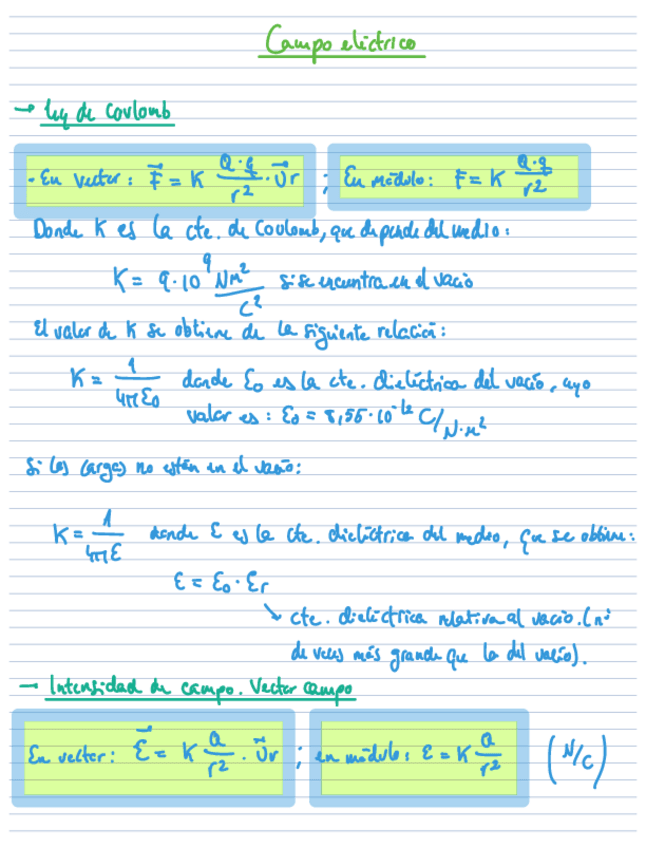 Campo eléctrico
→ ley de Coulomb
- En vector: F⃗ = K Q·q/r² · U⃗r ; En módulo: F = K Q·q/r²
Donde K es la cte. de Coulomb, que depende del medio:
K = 9·10⁹ Nm²/C² si se encuentra en el vacío
El valor de K se obtiene de la siguiente relación:
K = 1/4πε₀ donde ε₀ es la cte. dieléctrica del vacío, cuyo
valor es: ε₀ = 8,55·10⁻¹² C/N·m²
Si las cargas no están en el vacío:
K = 1/4πε donde ε es la cte. dieléctrica del medio, que se obtiene:
ε = ε₀·εr
↘ cte. dieléctrica relativa al vacío. (nº
de veces más grande que la del vacío).
→ Intensidad de campo. Vector campo
En vector: ε⃗ = K Q/r² · U⃗r ; en módulo: ε = K Q/r² (N/C)